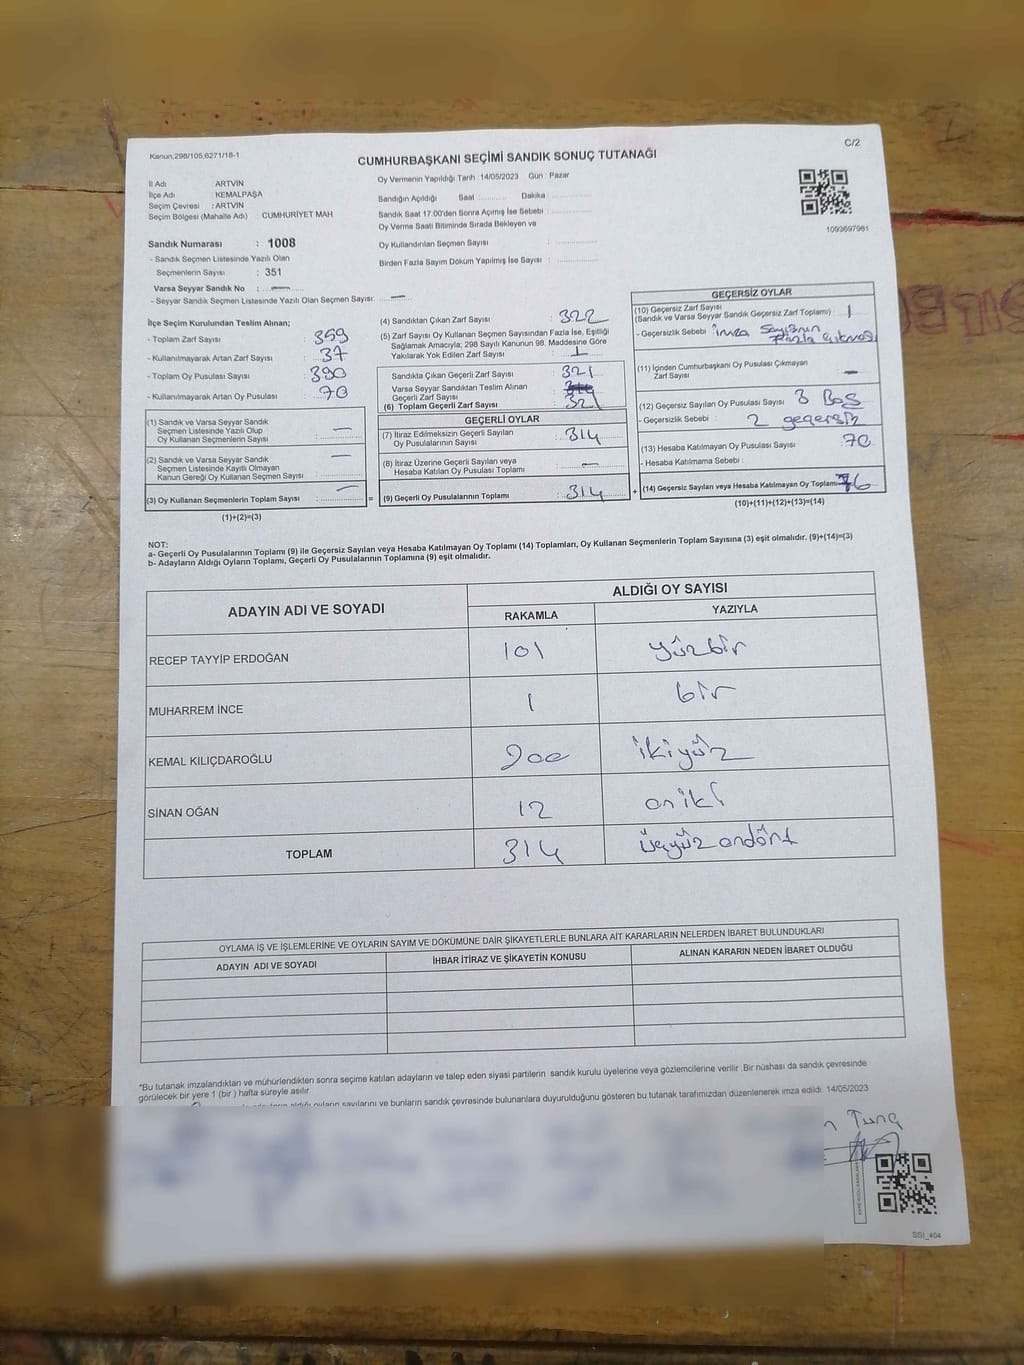 Kanun:298/105,6271/18-1
C/2
CUMHURBAŞKANI SEÇİMİ SANDIK SONUÇ TUTANAĞI
İl Adı : ARTVİN
İlçe Adı : KEMALPAŞA
Seçim Çevresi : ARTVİN
Seçim Bölgesi (Mahalle Adı) : CUMHURİYET MAH.
Sandık Numarası : 1008
- Sandık Seçmen Listesinde Yazılı Olan
Seçmenlerin Sayısı : 351
Varsa Seyyar Sandık No : —
- Seyyar Sandık Seçmen Listesinde Yazılı Olan Seçmen Sayısı: —
Oy Vermenin Yapıldığı Tarih :14/05/2023 Gün : Pazar
Sandığın Açıldığı Saat :............ Dakika :............
Sandık Saat 17.00'den Sonra Açımış İse Sebebi :............
Oy Verme Saati Bitiminde Sırada Bekleyen ve
Oy Kullandırılan Seçmen Sayısı :............
Birden Fazla Sayım Döküm Yapılmış İse Sayısı :............
1093697981
İlçe Seçim Kurulundan Teslim Alınan;
- Toplam Zarf Sayısı : 359
- Kullanılmayarak Artan Zarf Sayısı : 37
- Toplam Oy Pusulası Sayısı : 390
- Kullanılmayarak Artan Oy Pusulası : 70
(1) Sandık ve Varsa Seyyar Sandık
Seçmen Listesinde Yazılı Olup
Oy Kullanan Seçmenlerin Sayısı : —
(2) Sandık ve Varsa Seyyar Sandık
Seçmen Listesinde Kayıtlı Olmayan
Kanun Gereği Oy Kullanan Seçmen Sayısı : —
(3) Oy Kullanan Seçmenlerin Toplam Sayısı : —
(1)+(2)=(3)
(4) Sandıktan Çıkan Zarf Sayısı : 322
(5) Zarf Sayısı Oy Kullanan Seçmen Sayısından Fazla İse, Eşitliği
Sağlamak Amacıyla; 298 Sayılı Kanunun 98. Maddesine Göre
Yakılarak Yok Edilen Zarf Sayısı : 1
Sandıkta Çıkan Geçerli Zarf Sayısı : 321
Varsa Seyyar Sandıktan Teslim Alınan
Geçerli Zarf Sayısı :
(6) Toplam Geçerli Zarf Sayısı : 321
GEÇERLİ OYLAR
(7) İtiraz Edilmeksizin Geçerli Sayılan
Oy Pusulalarının Sayısı : 314
(8) İtiraz Üzerine Geçerli Sayılan veya
Hesaba Katılan Oy Pusulası Toplamı : —
= (9) Geçerli Oy Pusulalarının Toplamı : 314 +
GEÇERSİZ OYLAR
(10) Geçersiz Zarf Sayısı
(Sandık ve Varsa Seyyar Sandık Geçersiz Zarf Toplamı) : 1
- Geçersizlik Sebebi : imza sayısının
fazla çıkması
(11) İçinden Cumhurbaşkanı Oy Pusulası Çıkmayan
Zarf Sayısı : —
(12) Geçersiz Sayılan Oy Pusulası Sayısı : 3 Boş
- Geçersizlik Sebebi : 2 geçersiz
(13) Hesaba Katılmayan Oy Pusulası Sayısı : 70
- Hesaba Katılmama Sebebi :
(14) Geçersiz Sayılan veya Hesaba Katılmayan Oy Toplamı: 76
(10)+(11)+(12)+(13)=(14)
NOT:
a- Geçerli Oy Pusulalarının Toplamı (9) ile Geçersiz Sayılan veya Hesaba Katılmayan Oy Toplamı (14) Toplamları, Oy Kullanan Seçmenlerin Toplam Sayısına (3) eşit olmalıdır. (9)+(14)=(3)
b- Adayların Aldığı Oyların Toplamı, Geçerli Oy Pusulalarının Toplamına (9) eşit olmalıdır.
ADAYIN ADI VE SOYADI
ALDIĞI OY SAYISI
RAKAMLA YAZIYLA
RECEP TAYYİP ERDOĞAN 101 yüzbir
MUHARREM İNCE 1 bir
KEMAL KILIÇDAROĞLU 200 ikiyüz
SİNAN OĞAN 12 oniki
TOPLAM 314 üçyüz ondört
OYLAMA İŞ VE İŞLEMLERİNE VE OYLARIN SAYIM VE DÖKÜMÜNE DAİR ŞİKAYETLERLE BUNLARA AİT KARARLARIN NELERDEN İBARET BULUNDUKLARI
ADAYIN ADI VE SOYADI İHBAR İTİRAZ VE ŞİKAYETİN KONUSU ALINAN KARARIN NEDEN İBARET OLDUĞU
*Bu tutanak imzalandıktan ve mühürlendikten sonra seçime katılan adayların ve talep eden siyasi partilerin sandık kurulu üyelerine veya gözlemcilerine verilir .Bir nüshası da sandık çevresinde
görülecek bir yere 1 (bir ) hafta süreyle asılır.
aldığı oyların sayılarını ve bunların sandık çevresinde bulunanlara duyurulduğunu gösteren bu tutanak tarafımızdan düzenlenerek imza edildi. 14/05/2023
n Tunç
SSI_404